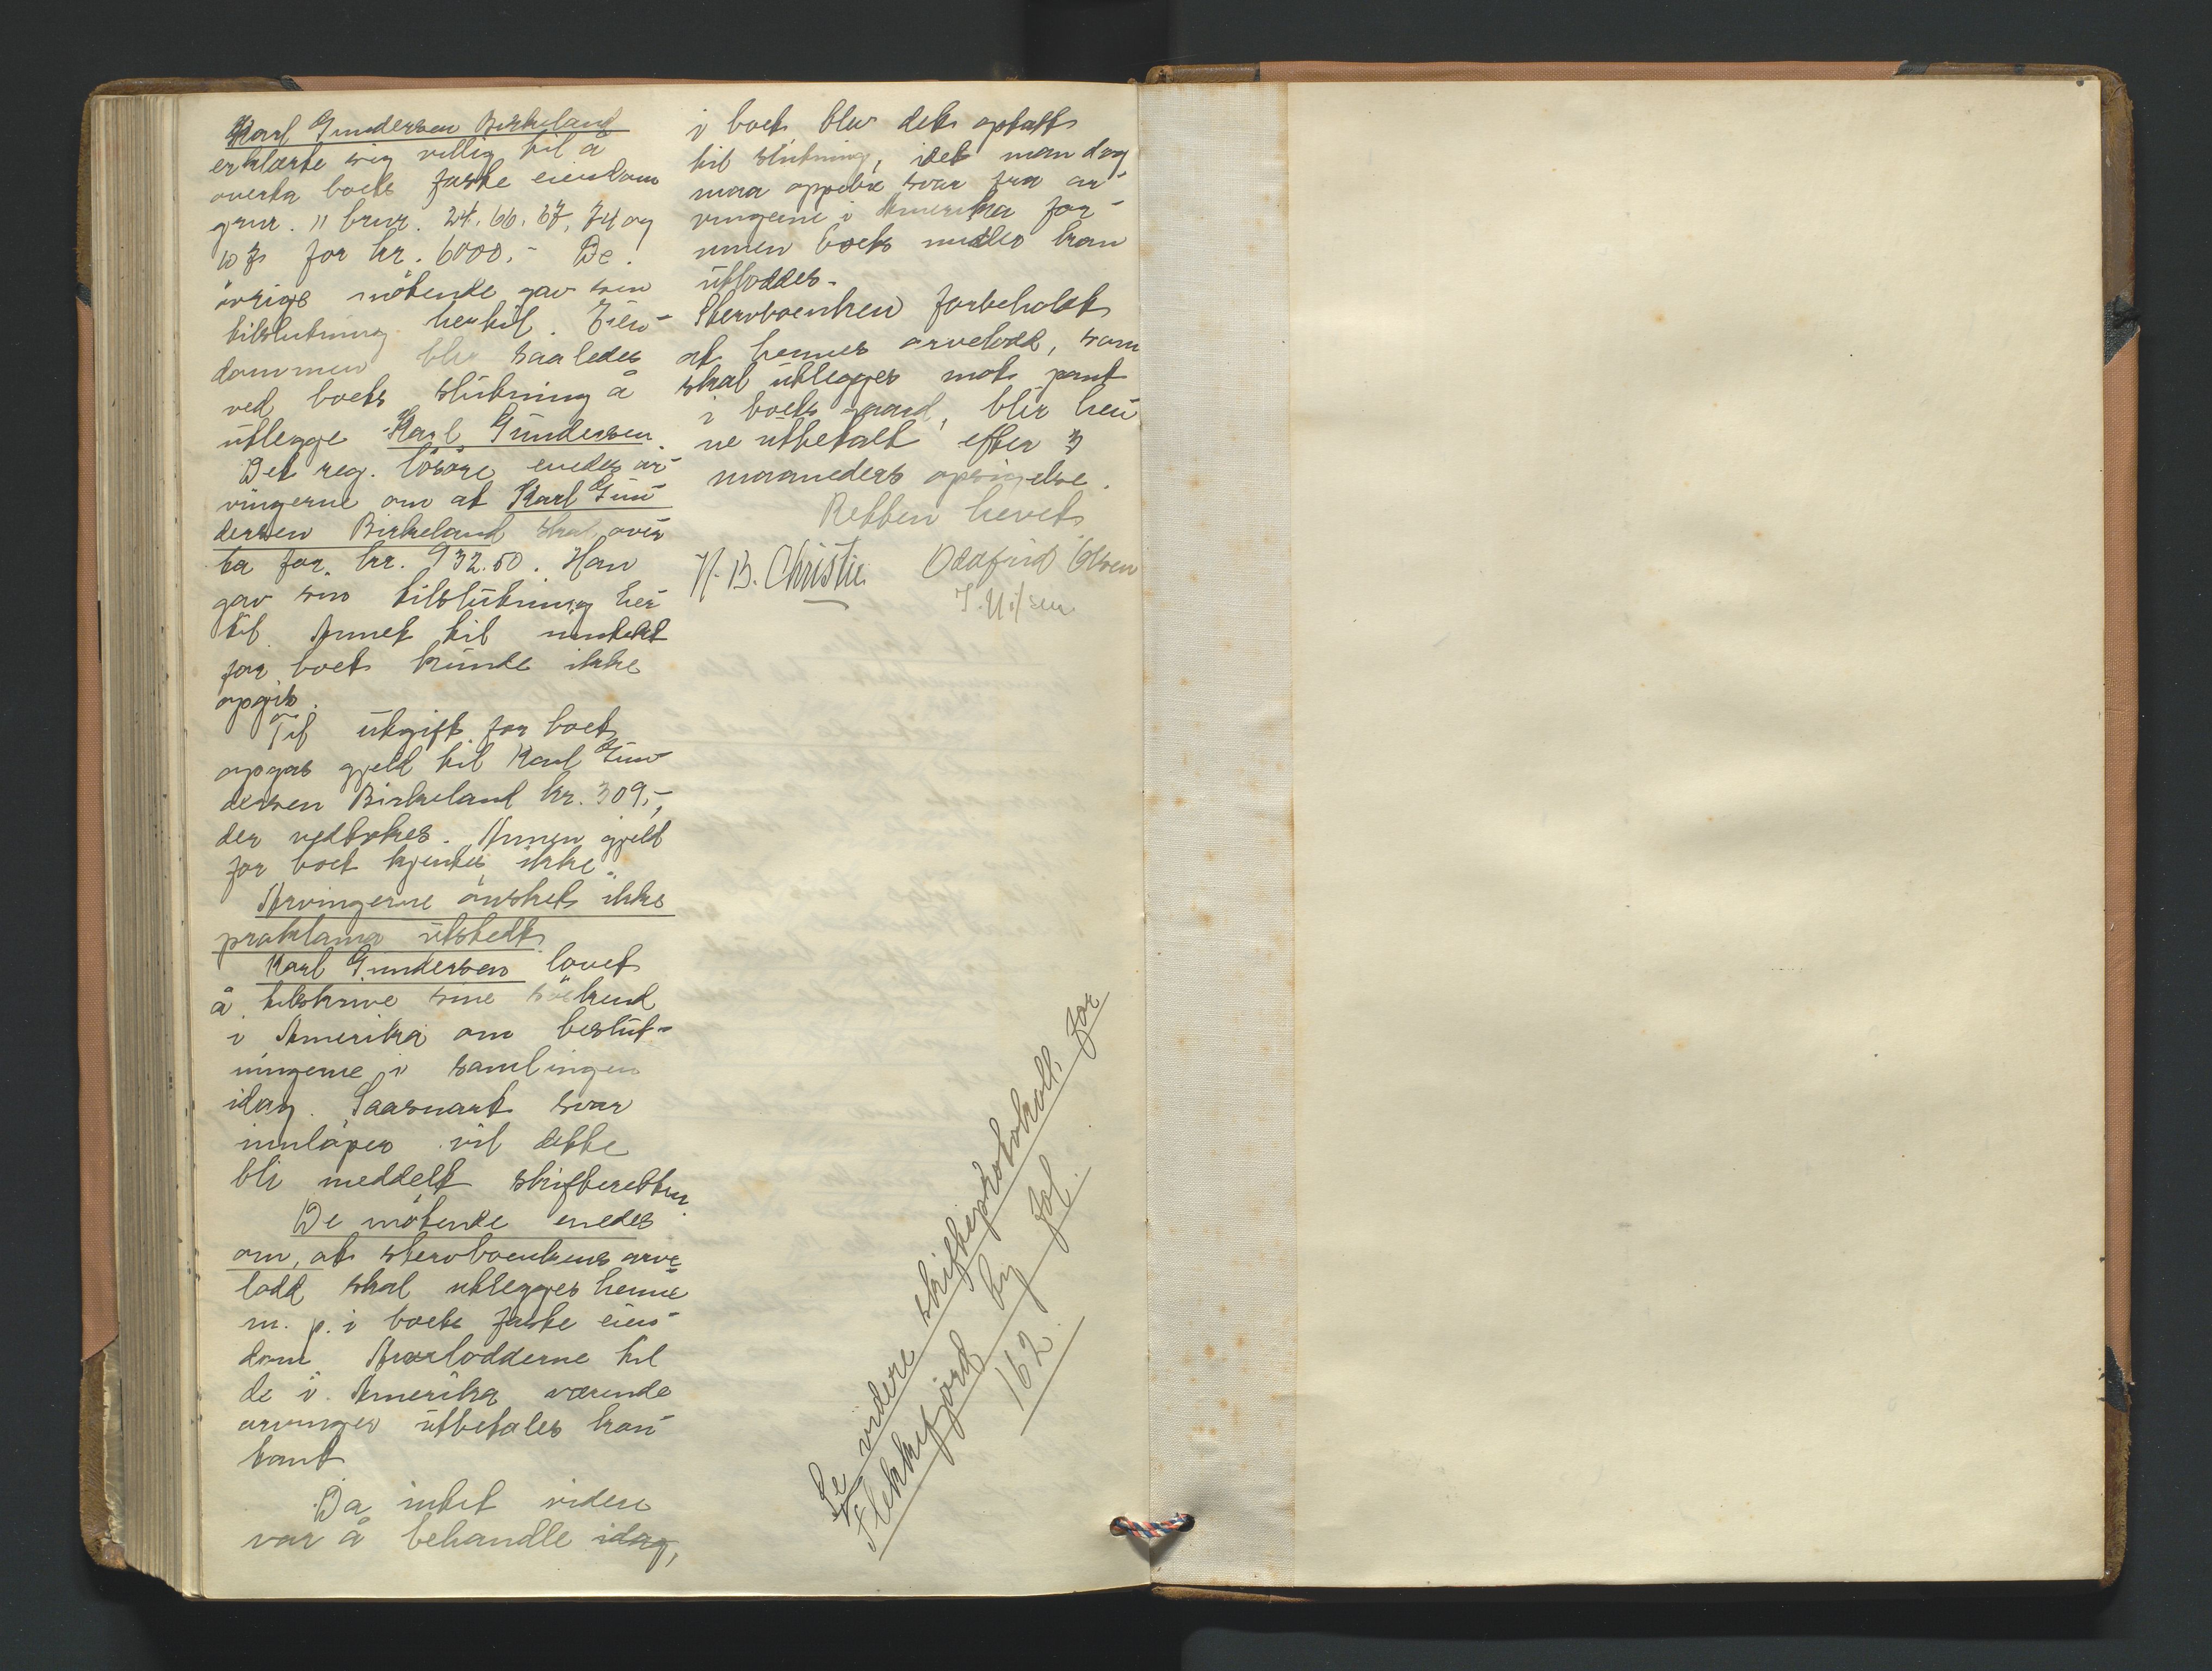 Karl Gundersen Birkeland
erklærte sig villig til å
overta boets faste eiendom
gnr. 11 brnr. 24, 66, 67, 74 og
107 for kr. 6000.- De
øvrige møtende gav sin
tilslutning hertil. Eien-
dommen blir saaledes
ved boets slutning å
utlegge Karl Gundersen.
Det reg. løsøre enedes ar-
vingerne om at Karl Gun-
dersen Birkeland skal over-
ta for kr. 932.50. Han
gav sin tilslutning her-
til. Annet til inntekt
for boet kunde ikke
opgis.
Til utgift for boet
opgas gjeld til Karl Gun-
dersen Birkeland kr. 309,-,
der vedtokes. Annen gjeld
for boet kjentes ikke.
Arvingerne ønsket ikke
proklama utstedt.
Karl Gundersen lovet
å tilskrive sine søskend
i Amerika om beslut-
ningerne i samlingen
idag. Saasnart svar
innløper vil dette
bli meddelt skifteretten.
De møtende enedes
om, at stervboenkens arve-
lodd skal utlegges henne
m. p. i boets faste eien-
dom. Arvelodderne til
de i Amerika værende
arvinger utbetales kon-
tant.
Da intet videre
var å behandle idag,
i boet blev det optatt
til slutning, idet man dog
maa oppebie svar fra ar-
vingerne i Amerika for-
innen boets midler kan
utloddes.
Stervboenken forbeholdt
at hennes arvelodd, som
skal utlegges mot pant
i boets gaard, blir hen-
ne utbetalt efter 3
maaneders opsigelse.
Retten hevet
N. B. Christie Oddfrid Olsen
T. Nilsen
Se videre skifteprotokoll for
Flekkefjord by fol.
162.